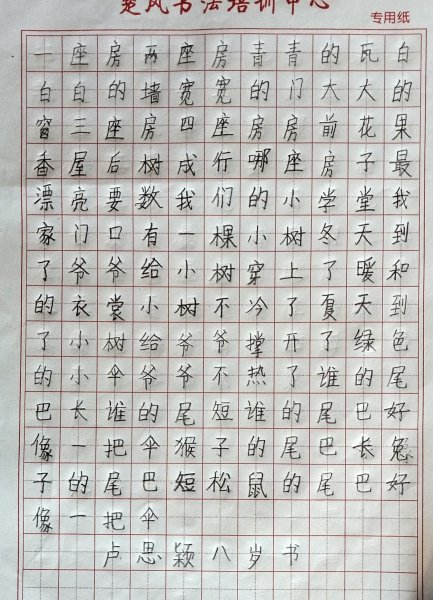 楚风书法培训中心
专用纸
一座房两座房青青的瓦白
白白的墙宽宽的门大大的
窗三座房四座房房前花果
香屋后树成行哪座房子最
漂亮要数我们的小学堂我
家门口有一棵小树冬天到
了爷爷给小树穿上了暖和
的衣裳小树不冷了夏天到
了小树给爷爷撑开了绿色
的小伞爷爷不热了谁的尾
巴长谁的尾短谁的尾巴好
像一把伞猴子的尾巴长兔
子的尾巴短松鼠的尾巴好
像一把伞
卢思颖八岁书